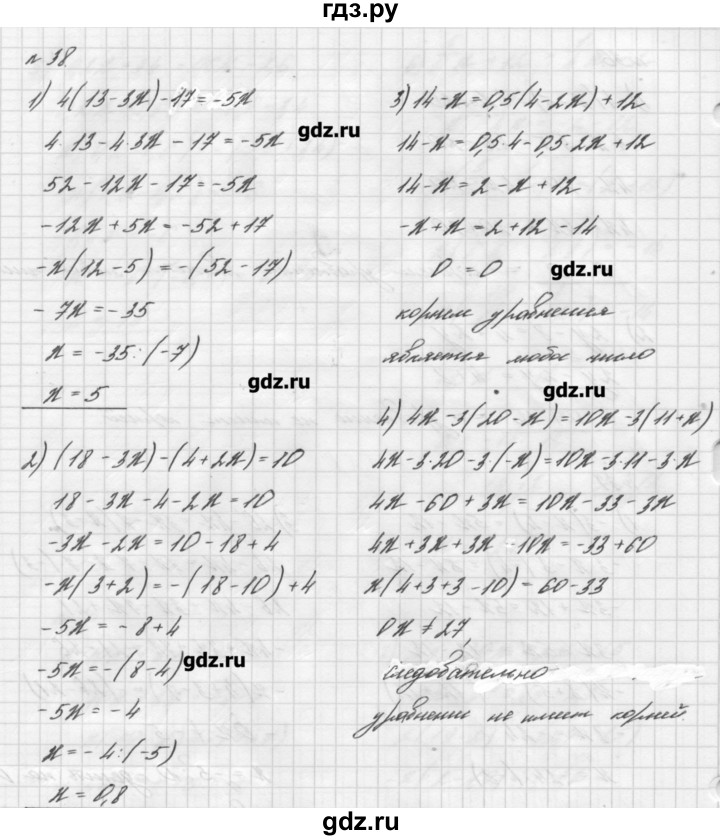 гдз.ру
№ 38
1) 4(13-3x)-17=-5x
4·13-4·3x-17=-5x
gdz.ru
52-12x-17=-5x
-12x+5x=-52+17
-x(12-5)=-(52-17)
-7x=-35
x=-35:(-7)
gdz.ru
x=5
2) (18-3x)-(4+2x)=10
18-3x-4-2x=10
-3x-2x=10-18+4
-x(3+2)=-(18-10)+4
-5x=-8+4
-5x=-(8-4)
gdz.ru
-5x=-4
x=-4:(-5)
x=0,8
3) 14-x=0,5(4-2x)+12
14-x=0,5·4-0,5·2x+12
14-x=2-x+12
-x+x=2+12-14
0=0
gdz.ru
корнем уравнения
является любое число
gdz.ru
4) 4x-3(20-x)=10x-3(11+x)
4x-3·20-3(-x)=10x-3·11-3·x
4x-60+3x=10x-33-3x
4x+3x+3x-10x=-33+60
x(4+3+3-10)=60-33
0x≠27,
следовательно
уравнение не имеет корней.
gdz.ru